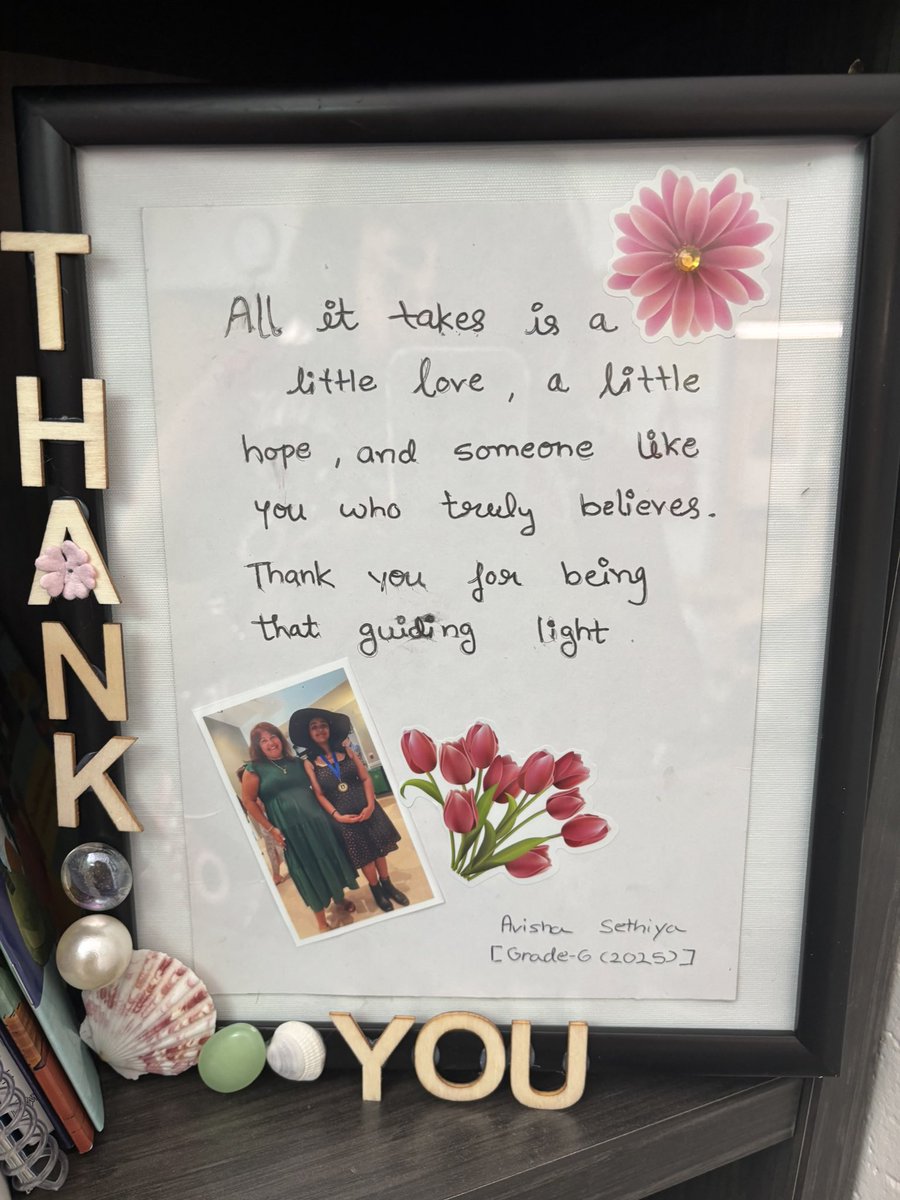 THANK
All it takes is a
little love, a little
hope, and someone like
you who truly believes.
Thank you for being
that guiding light.
Avisha Sethiya
[Grade-6 (2025)]
YOU